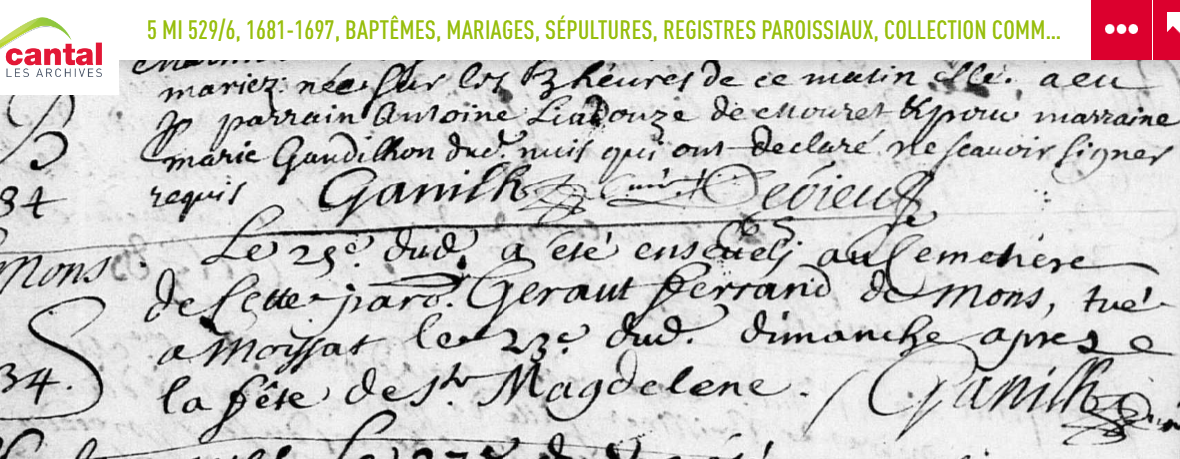 cantal
LES ARCHIVES
5 MI 529/6, 1681-1697, BAPTÊMES, MARIAGES, SÉPULTURES, REGISTRES PAROISSIAUX, COLLECTION COMM...
mariez. née sur les 3 heures de ce matin elle. a eu
pr parrain Antoine Liadouze de Mouret & pour marraine
marie Gandilhon dud. nuis qui ont declaré ne scavoir signer
34
requis Ganilh
Mons
Le 25e dud. a été enseveli au Cemetiere
de Cette paro. Geraut ferrand de Mons, tué
a Moissat le 23e dud. dimanche apres
34.
la fête de Ste Magdelene. Ganilh